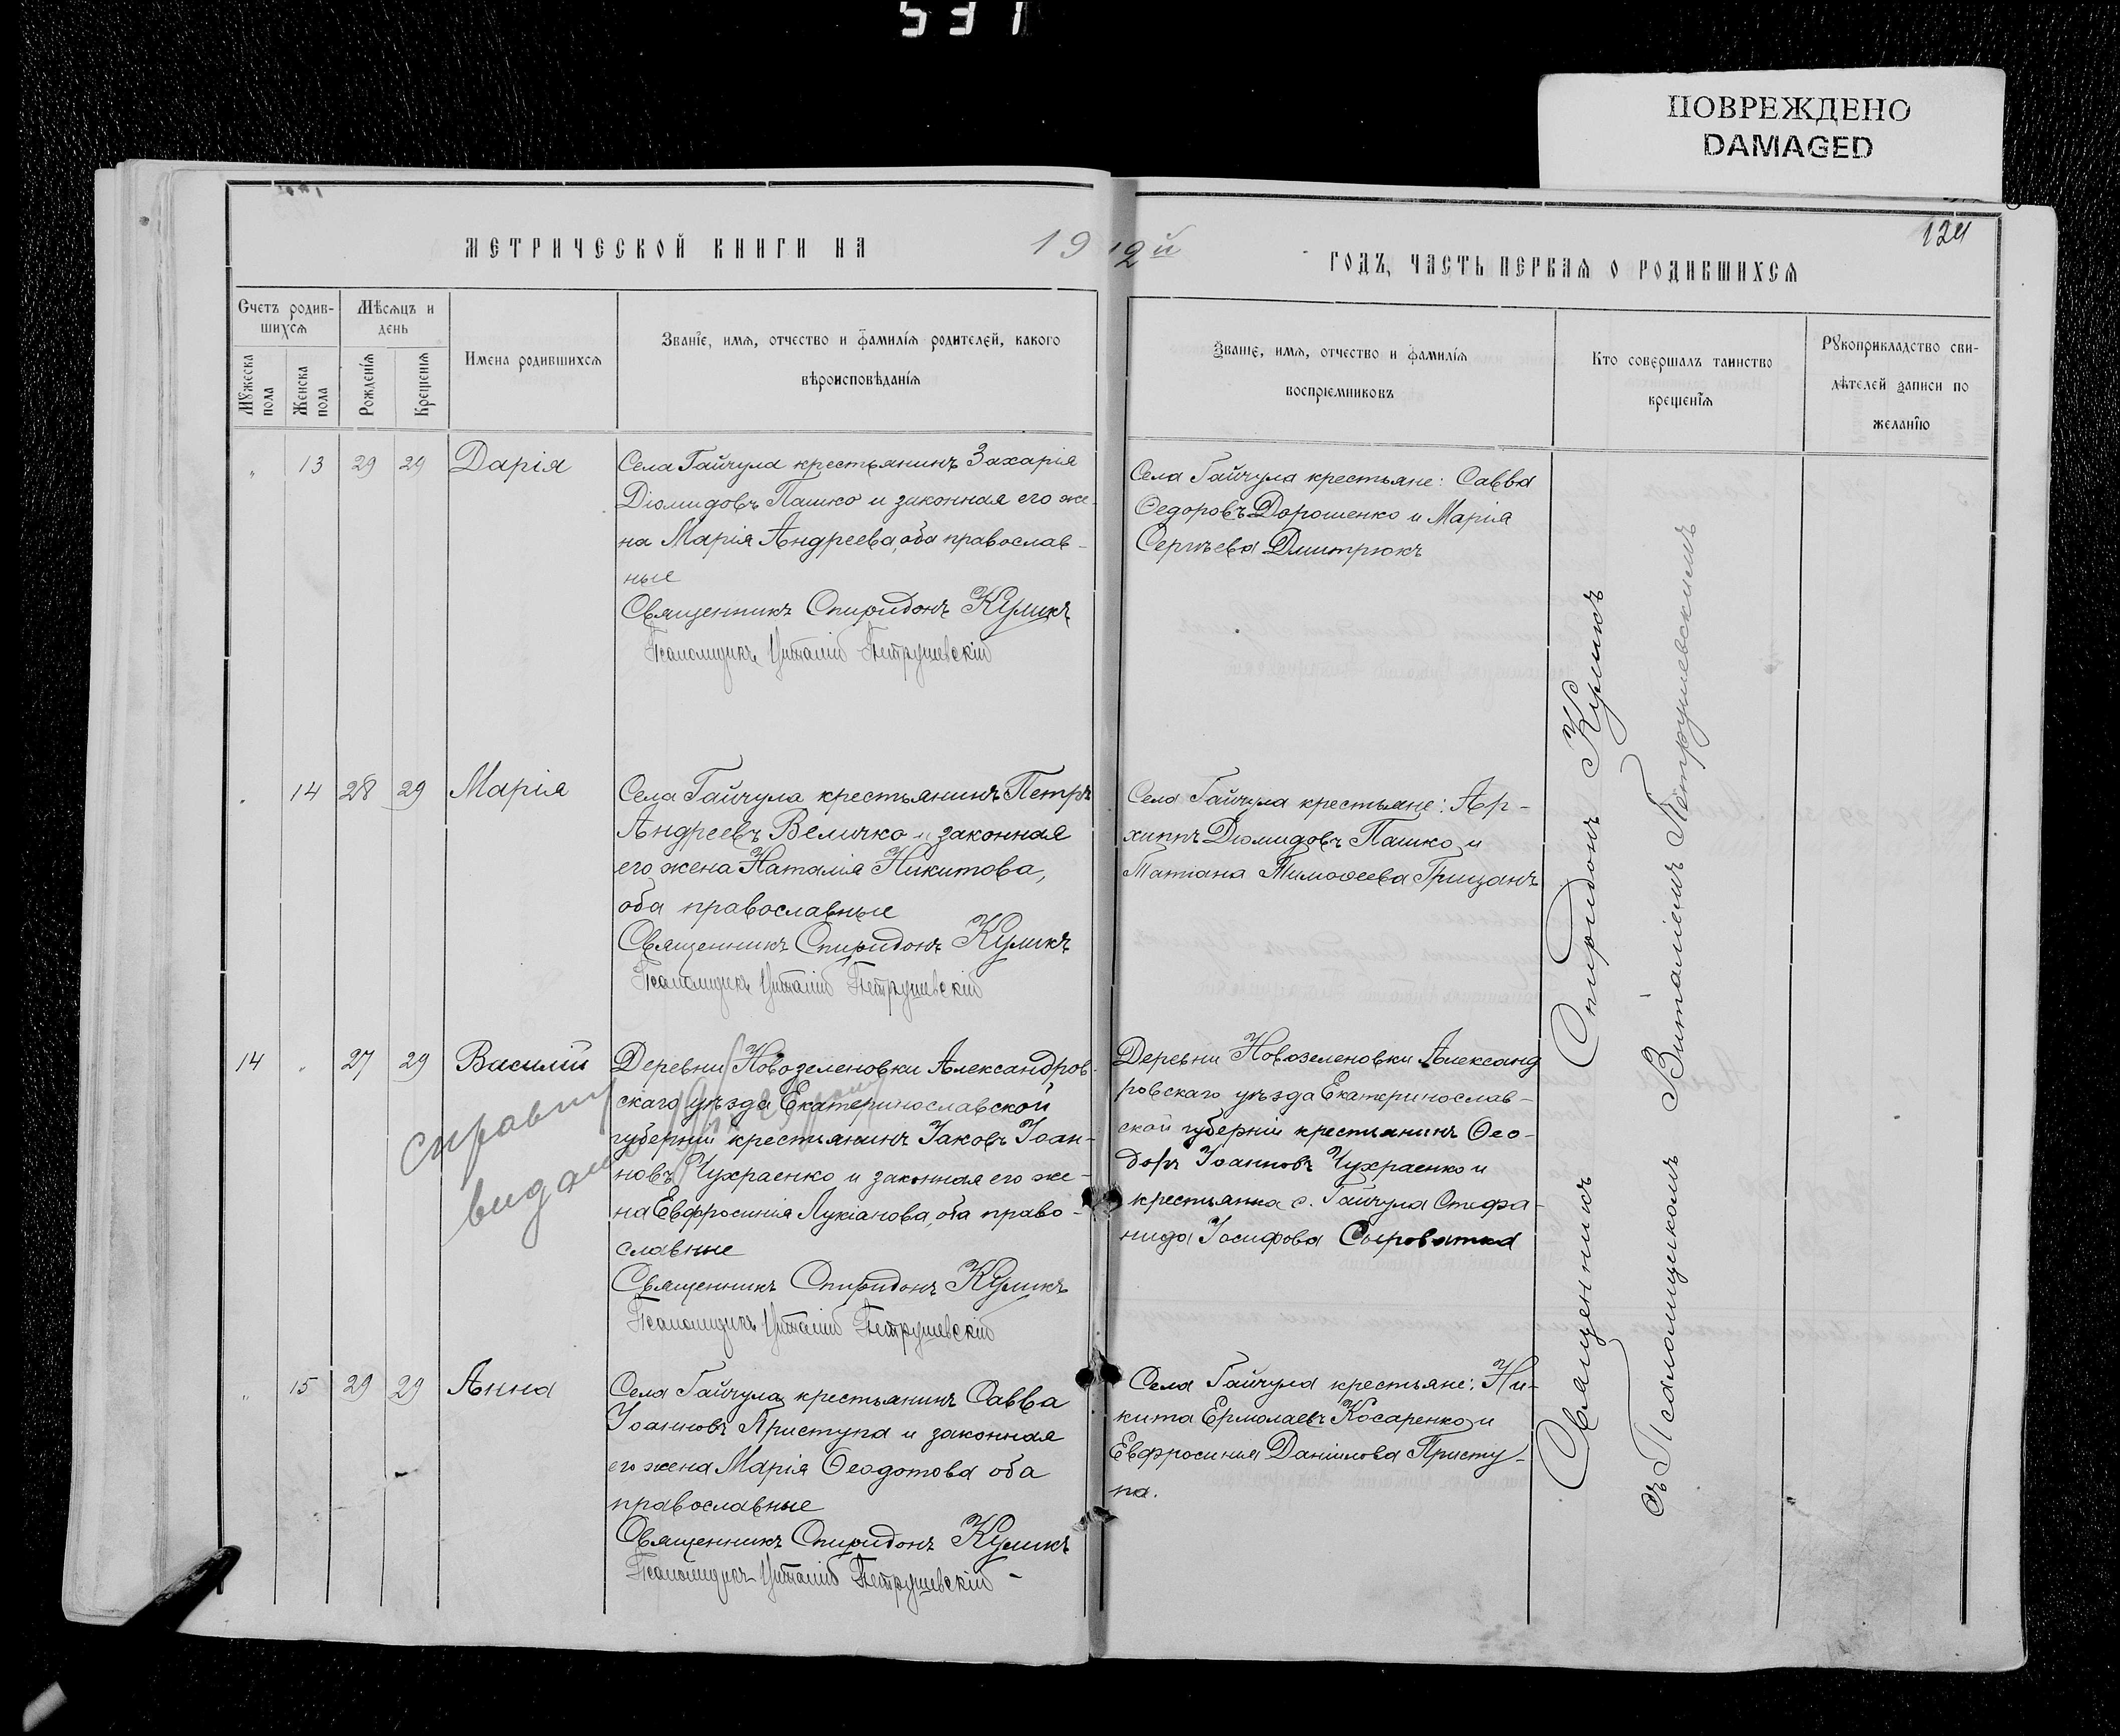 531
ПОВРЕЖДЕНО
DAMAGED
124
МЕТРИЧЕСКОЙ КНИГИ НА 1912й ГОДЪ, ЧАСТЬ ПЕРВАЯ О РОДИВШИХСЯ
Счетъ родив-
шихся
Мужеска пола
Женска пола
Мѣсяцъ и
день
Рожденія
Крещенія
Имена родившихся
Званіе, имя, отчество и фамилія родителей, какого
вѣроисповѣданія
Званіе, имя, отчество и фамилія
воспріемниковъ
Кто совершалъ таинство
крещенія
Рукоприкладство сви-
дѣтелей записи по
желанію
" 13 29 29 Дарія
Села Гайчула крестьянинъ Захарія
Діомидовъ Пашко и законная его же-
на Марія Андреева, оба православ-
ные
Священникъ Спиридонъ Куликъ
Псаломщикъ Виталій Петрушевскій
Села Гайчула крестьяне: Савва
Ѳедоровъ Дорошенко и Марія
Сергѣева Дмитрюкъ
" 14 28 29 Марія
Села Гайчула крестьянинъ Петръ
Андреевъ Величко и законная
его жена Наталія Никитова,
оба православные
Священникъ Спиридонъ Куликъ
Псаломщикъ Виталій Петрушевскій
Села Гайчула крестьяне: Ар-
хиппъ Діомидовъ Пашко и
Татіана Тимоѳеева Грицанъ
14 " 27 29 Василій
Деревни Новозеленовки Александров-
скаго уѣзда Екатеринославской
губерніи крестьянинъ Іаковъ Іоан-
новъ Чухраенко и законная его же-
на Евфросинія Лукіанова, оба право-
славные
Священникъ Спиридонъ Куликъ
Псаломщикъ Виталій Петрушевскій
справку
видано
Деревни Новозеленовки Александ
ровскаго уѣзда Екатеринослав-
ской губерніи крестьянинъ Ѳео-
доръ Іоанновъ Чухраенко и
крестьянка с. Гайчула Стефа-
нида Іосифова Сыроватка
" 15 29 29 Анна
Села Гайчула крестьянинъ Савва
Іоанновъ Приступа и законная
его жена Марія Ѳеодотова оба
православные
Священникъ Спиридонъ Куликъ
Псаломщикъ Виталій Петрушевскій
Села Гайчула крестьяне: Ни-
кита Ермолаевъ Косаренко и
Евфросинія Даніилова Присту-
па.
Священникъ Спиридонъ Куликъ
съ Псаломщикомъ Виталіемъ Петрушевскимъ